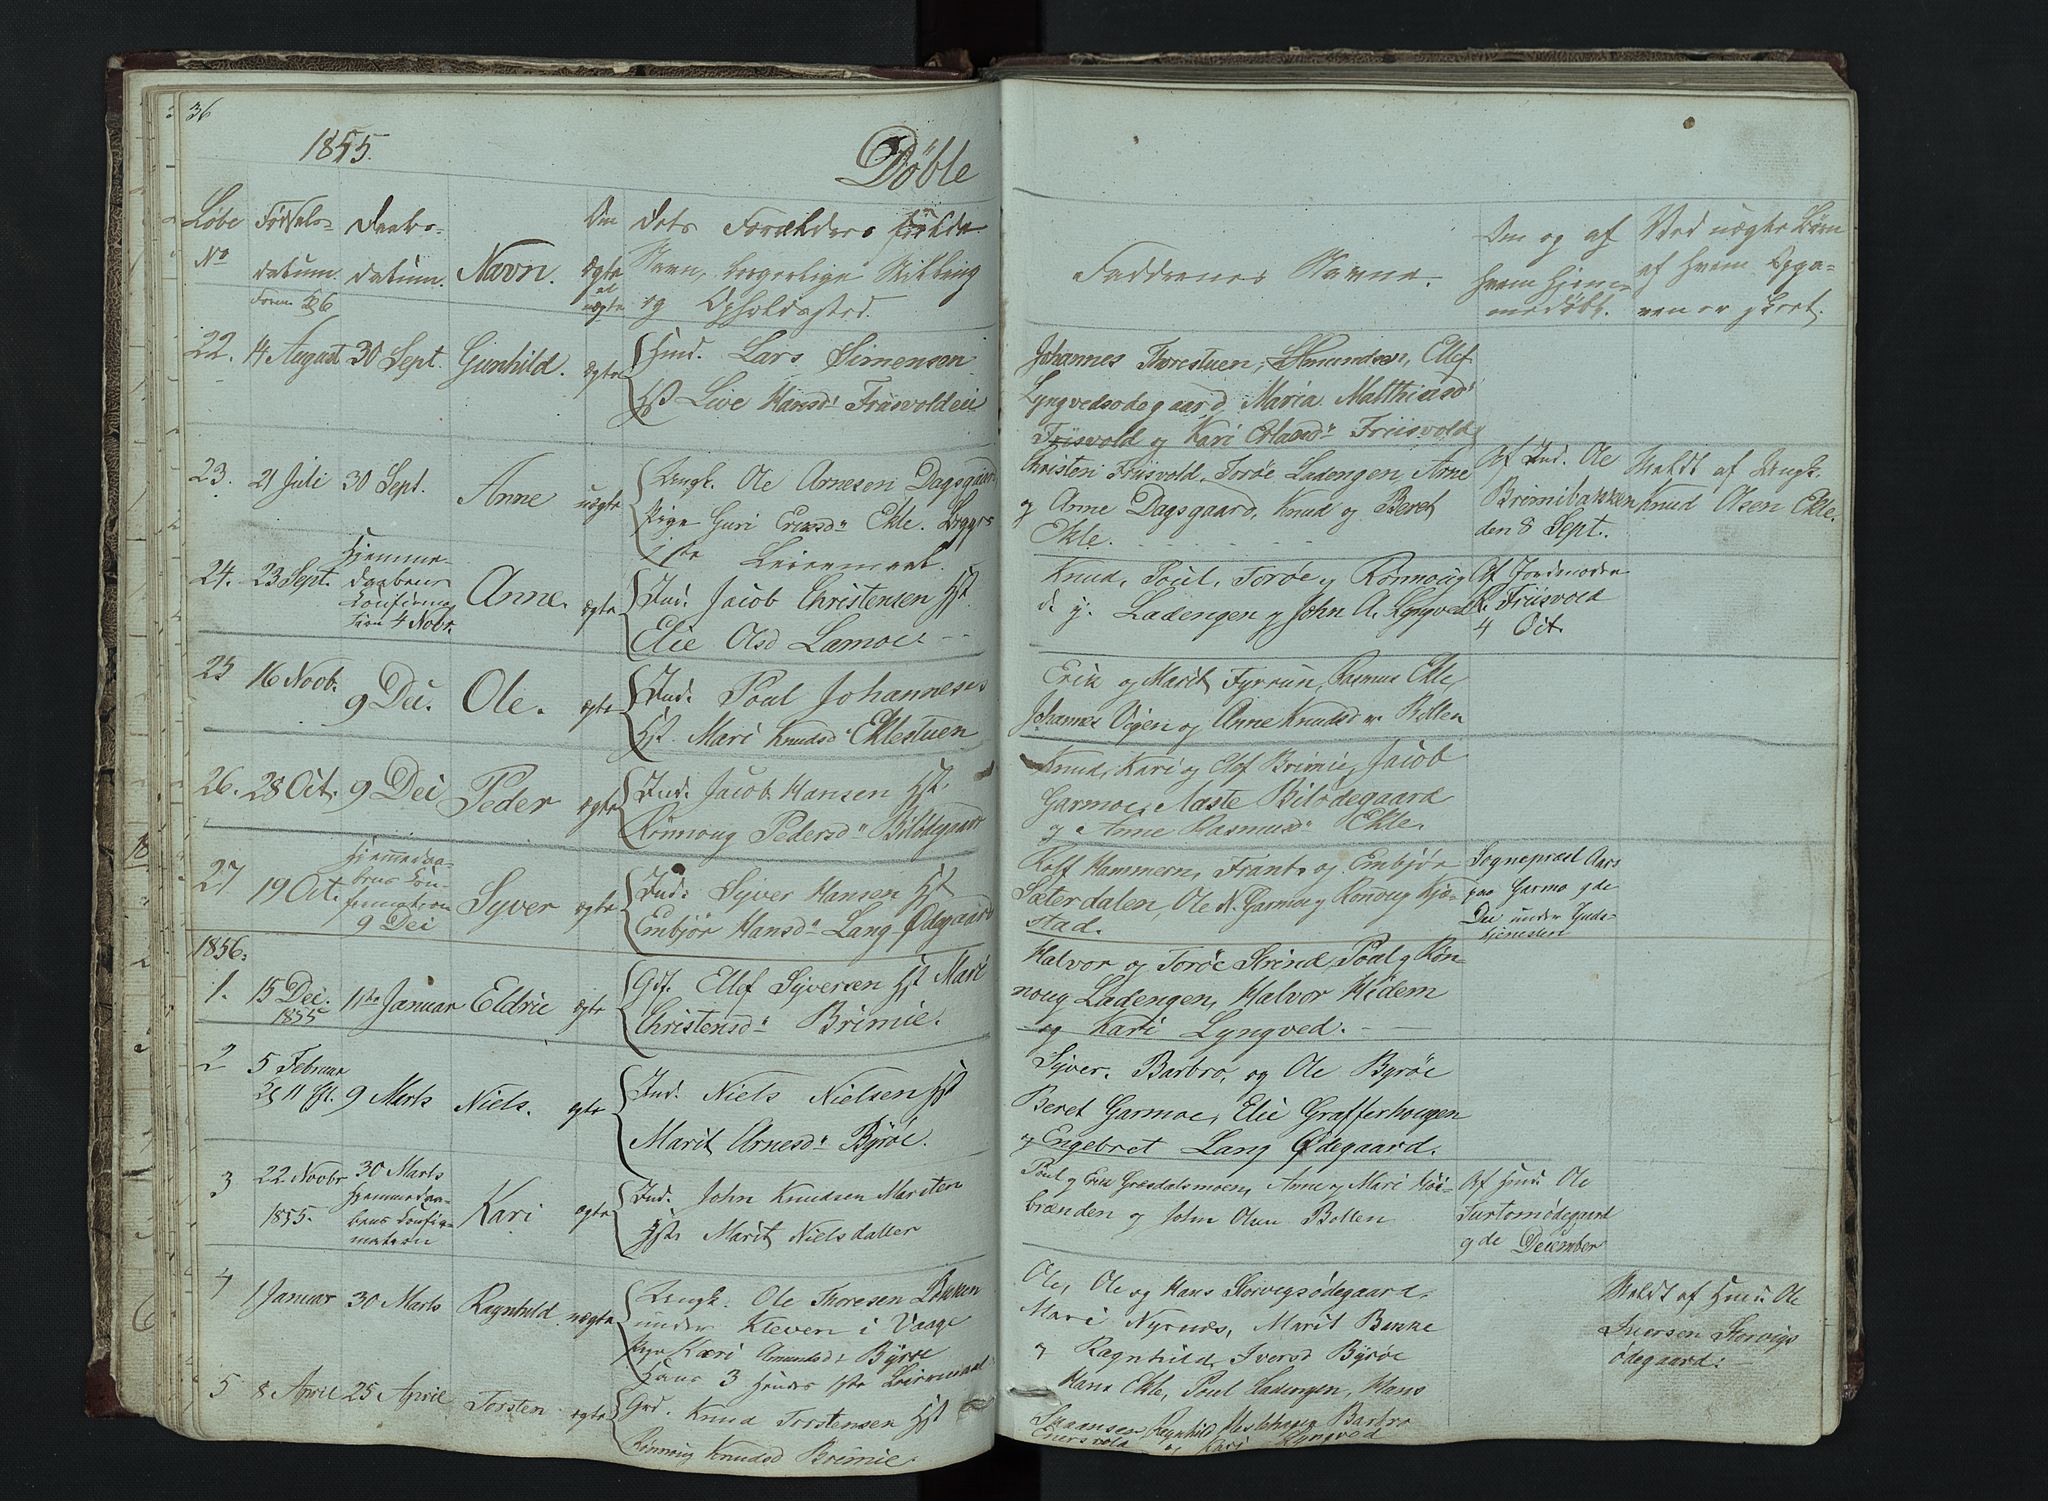 36
1855.
Döbte
Løbe No
Födsels-datum.
Daabs-datum.
Navn.
Om ægte el uægte
Dets Forældres fulde
Navn, borgerlige Stilling
og Opholdssted.
Faddernes Navne.
Om og af
hvem hjem-
medøbt.
Ved uægte Børn
af hvem Opga-
ven er skeet.
22. 14 August 30 Sept. Gunhild. ægte
Hmd. Lars Simensen
Hst Live Hansd. Friisvoldeie
Johannes Thorestuen, Amundsen, Ellef
Lyngvedsødegaard, Maria Matthiisd
Friisvold og Kari Erlandsd. Friisvold
23. 21 Juli 30 Sept. Anne uægte
Ungk. Ole Arnesen Dagsgaard
Pige Guri Eriksd. Ekle. Begges
1ste Leiermaal.
Christen Friisvold, Toröe Ladengen, Arne
og Anne Dagsgaard, Knud og Beret
Ekle.
Af Ind. Ole
Brimibakken
den 8 Sept.
Meldt af Ungk.
Knud Olsen Ekle.
24. 23 Sept. Hjemme-
daabens
Confirma
tion 4 Nobr. Anne. ægte
Ind. Jacob Christensen Hst
Elie Olsd Lamoe.
Knud, Poul, Toröe og Rönnoug
Ladengen og John A. Lyngved
Af Jordmoder
R. Friisvold
4 Oct.
25 16 Novb. 9 Dec. Ole. ægte
Ind. Poul Johannesen
Hst. Mari Knudsd. Eklestuen
Erik og Marit Fyrrun, Rasmus Ekle,
Johannes Vigen og Anne Knudsd. Bollen
26. 28 Oct. 9 Dec Peder ægte
Ind. Jacob Hansen Hst.
Rönnoug Pedersd. Bilödegaard
Knud, Kari og Elef Brimie, Jacob
Garmoe, Aaste Bilödegaard
og Anne Rasmusd. Ekle.
27 19 Oct. Hjemmedaa-
bens Con-
firmation
9 Dec Syver ægte
Ind. Syver Hansen Hst
Embjör Hansd. Lang Ödegaard
Rolf Hammern, Frants og Embjör
Sæterdalen, Ole N. Garmoe og Ronnoug Kjø-
stad.
Sognepræst Aars
paa Garmo 9de
Dec under Guds-
tjenesten
1856.
1. 15 Dec. 1855 11te Januar Eldrie ægte
Gdf. Ellef Syversen Hst Mari
Christensd. Brimie.
Halvor og Toröe Strind, Poul og Rön-
noug Ladengen, Halvor Hidem
og Kari Lyngved.
2 5 Februar 9 Marts Niels. ægte
Ind. Niels Nielsen Hst
Marit Arnesd. Byröe.
Syver, Barbro, og Ole Byröe
Beret Garmoe, Elie Grafferhougen
og Engebret Lang Ödegaard.
3 22 Novbr 1855. 30 Marts
Hjemmedaa-
bens Confir-
mation Kari ægte
Ind. John Knudsen Marsten
Hst. Marit Nielsdatter
Poul og Erik Græsdalsmoen, Anne og Mari Höi-
brænden og John Olsen Bollen
Af Hmd. Ole
Turtomödegaard
9de December
4 1 Januar 30 Marts Ragnhild. uægte
Ungk. Ole Thoresen Bakken
under Kleven i Vaage
Pige Kari Amundsd. Byröe
Hans 3 Hendes 1ste Leiermaal
Ole, Ole og Hans Storvigsödegaard,
Mari Nyrnæs, Marit Bakke
og Ragnhild Iversd Byröe
Meldt af Hmd. Ole
Iversen Storvigs
ödegaard.
5 8 April 25 April Torsten ægte
Gmd. Knud Torstensen Hst
Rönnoug Knudsd Brimie.
Hans Ekle, Poul Ladengen, Hans
Ragnhild Barbro
og Kari Lyngved